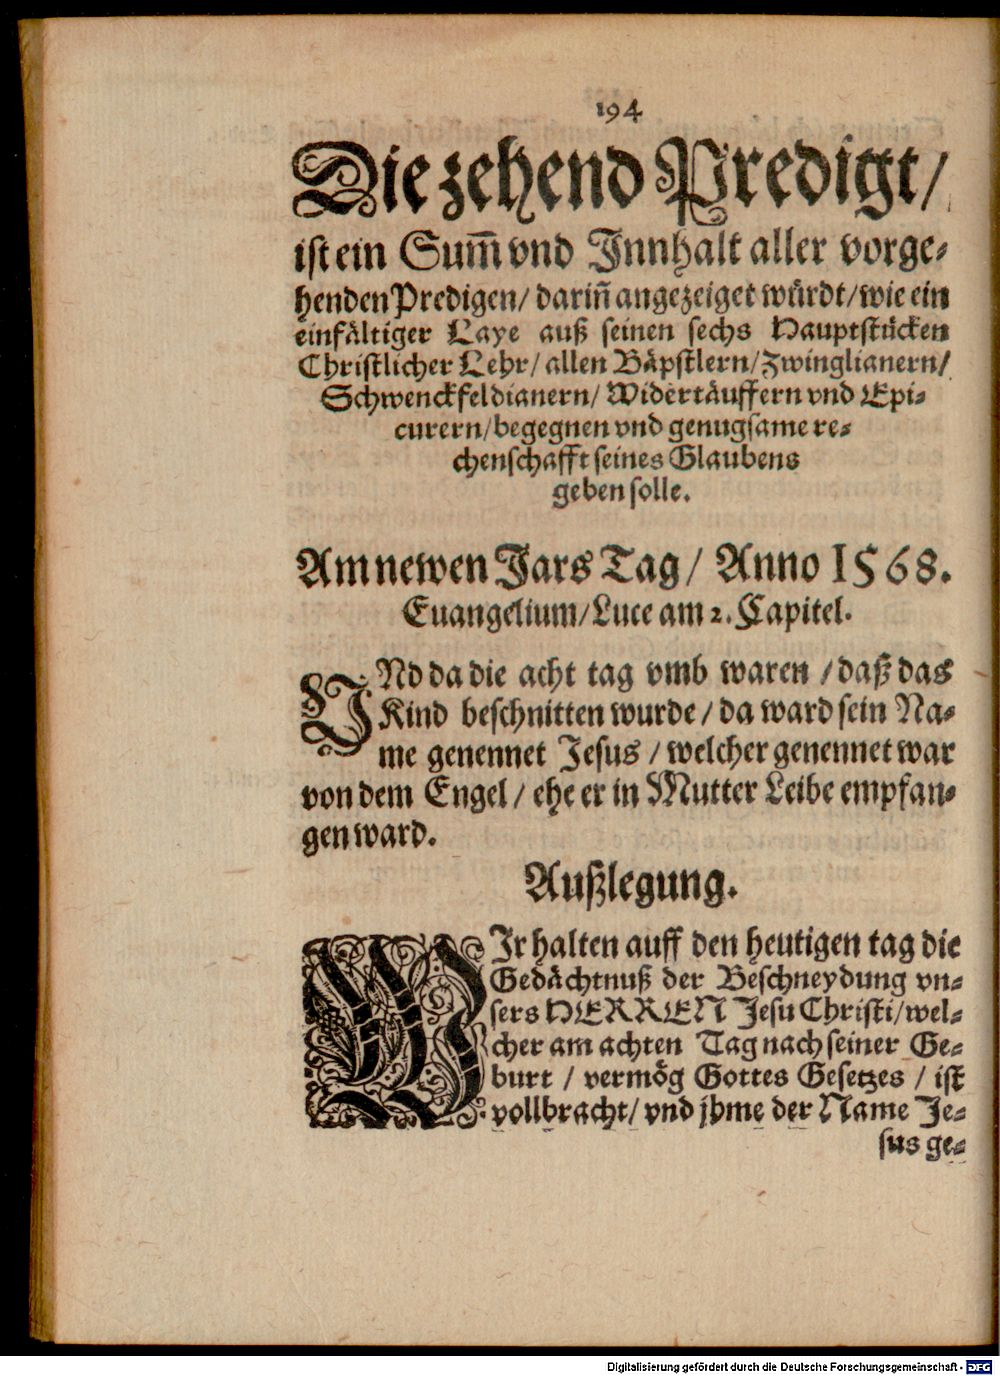 194
Die zehend Predigt/
ist ein Sum̅ vnd Innhalt aller vorge⸗
henden Predigen/ darin̅ angezeiget würdt/ wie ein
einfältiger Laye auß seinen sechs Hauptstücken
Christlicher Lehr/ allen Bäpstlern/ Zwinglianern/
Schwenckfeldianern/ Widertäuffern vnd Epi⸗
curern/ begegnen vnd genugsame re⸗
chenschafft seines Glaubens
geben solle.
Am newen Jars Tag/ Anno 1568.
Euangelium/ Luce am 2. Capitel.
VNd da die acht tag vmb waren / daß das
Kind beschnitten wurde / da ward sein Na⸗
me genennet Jesus / welcher genennet war
von dem Engel / ehe er in Mutter Leibe empfan⸗
gen ward.
Außlegung.
WIr halten auff den heutigen tag die
Gedächtnuß der Beschneydung vn⸗
sers HERREN Jesu Christi/ wel⸗
cher am achten Tag nach seiner Ge⸗
burt / vermög Gottes Gesetzes / ist
vollbracht/ vnd jhme der Name Je⸗
sus ge⸗
Digitalisierung gefördert durch die Deutsche Forschungsgemeinschaft - DFG